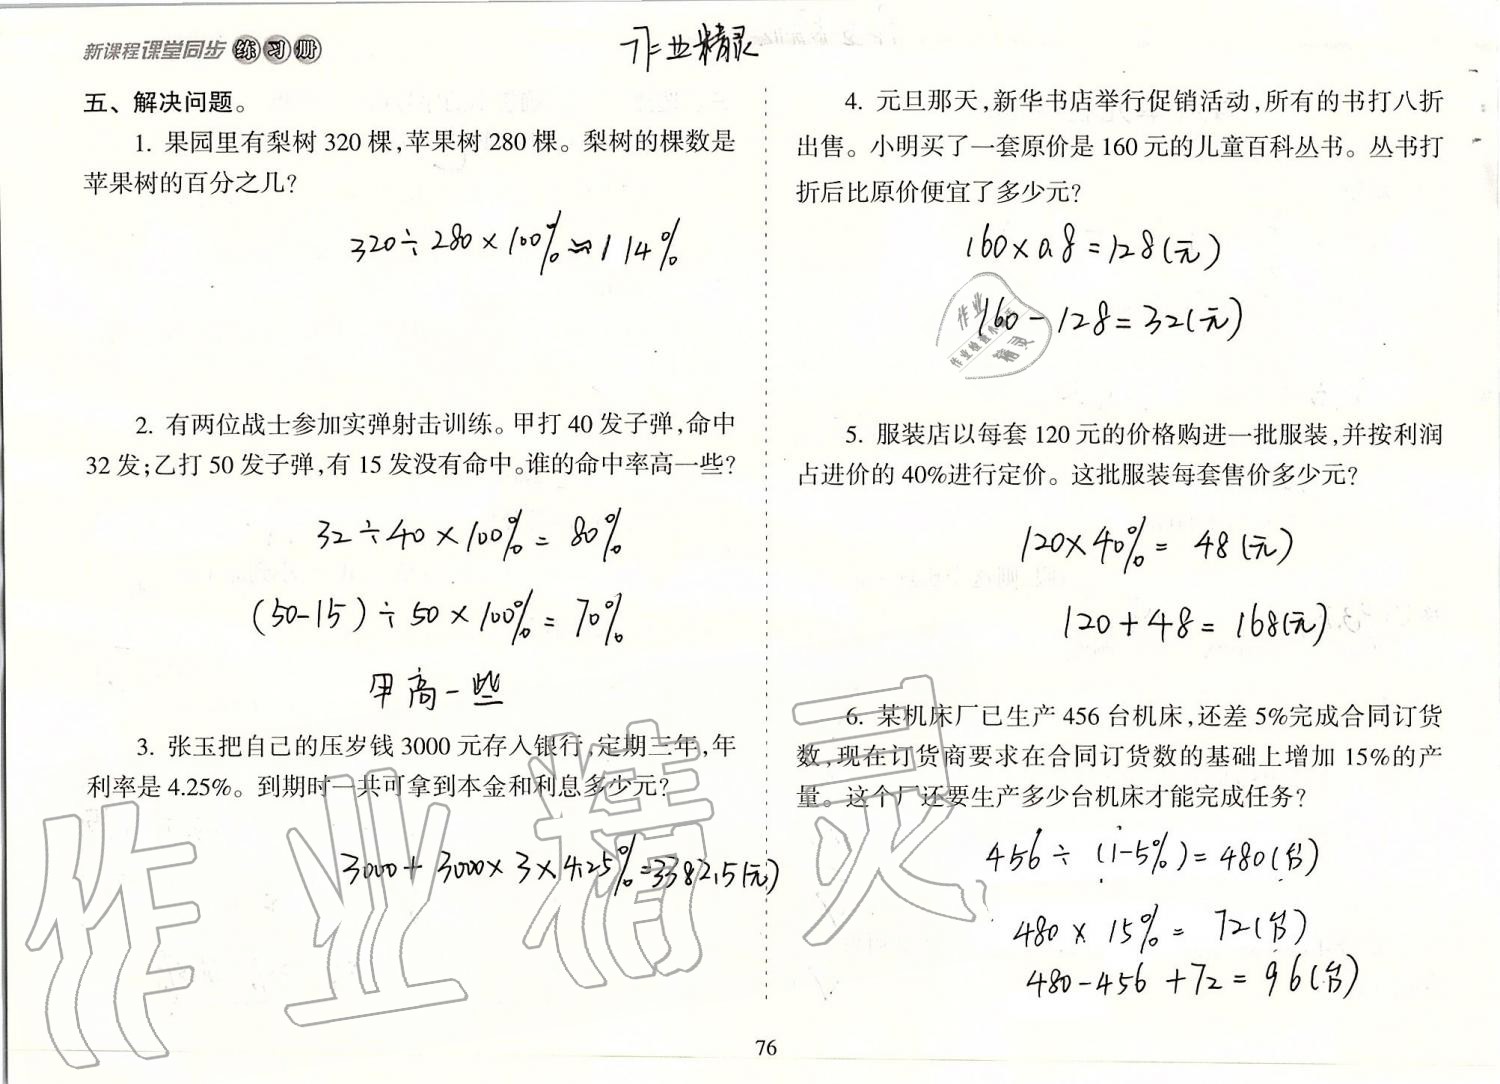 新课程课堂同步练习册
作业精灵
五、解决问题。
1. 果园里有梨树 320 棵,苹果树 280 棵。梨树的棵数是
苹果树的百分之几?
320÷280×100%≈114%
2. 有两位战士参加实弹射击训练。甲打 40 发子弹,命中
32 发;乙打 50 发子弹,有 15 发没有命中。谁的命中率高一些?
32÷40×100%=80%
(50-15)÷50×100%=70%
甲高一些
3. 张玉把自己的压岁钱 3000 元存入银行,定期三年,年
利率是 4.25%。到期时一共可拿到本金和利息多少元?
3000+3000×3×4.25%=3382.5(元)
4. 元旦那天,新华书店举行促销活动,所有的书打八折
出售。小明买了一套原价是 160 元的儿童百科丛书。丛书打
折后比原价便宜了多少元?
160×0.8=128(元)
160-128=32(元)
作业
作业检查小帮手
精灵
5. 服装店以每套 120 元的价格购进一批服装,并按利润
占进价的 40%进行定价。这批服装每套售价多少元?
120×40%=48(元)
120+48=168(元)
6. 某机床厂已生产 456 台机床,还差 5%完成合同订货
数,现在订货商要求在合同订货数的基础上增加 15%的产
量。这个厂还要生产多少台机床才能完成任务?
456÷(1-5%)=480(台)
480×15%=72(台)
480-456+72=96(台)
作业精灵
76